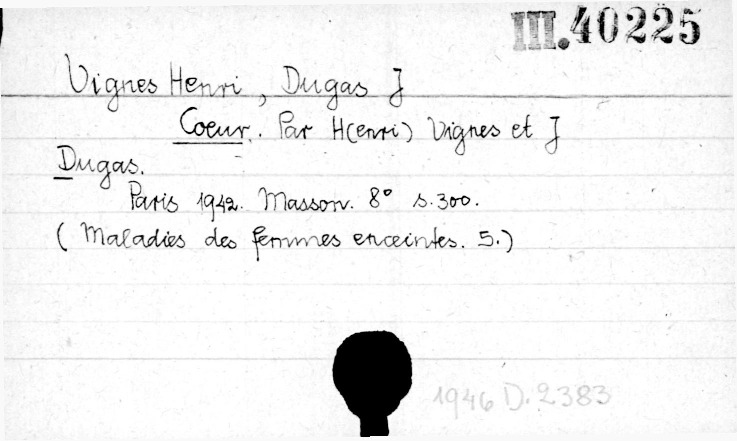 III.40225
Vignes Henri, Dugas J
Coeur. Par H(enri) Vignes et J
Dugas.
Paris 1942. Masson. 8° s.300.
(Maladies des femmes enceintes. 5.)
1946 D.2383